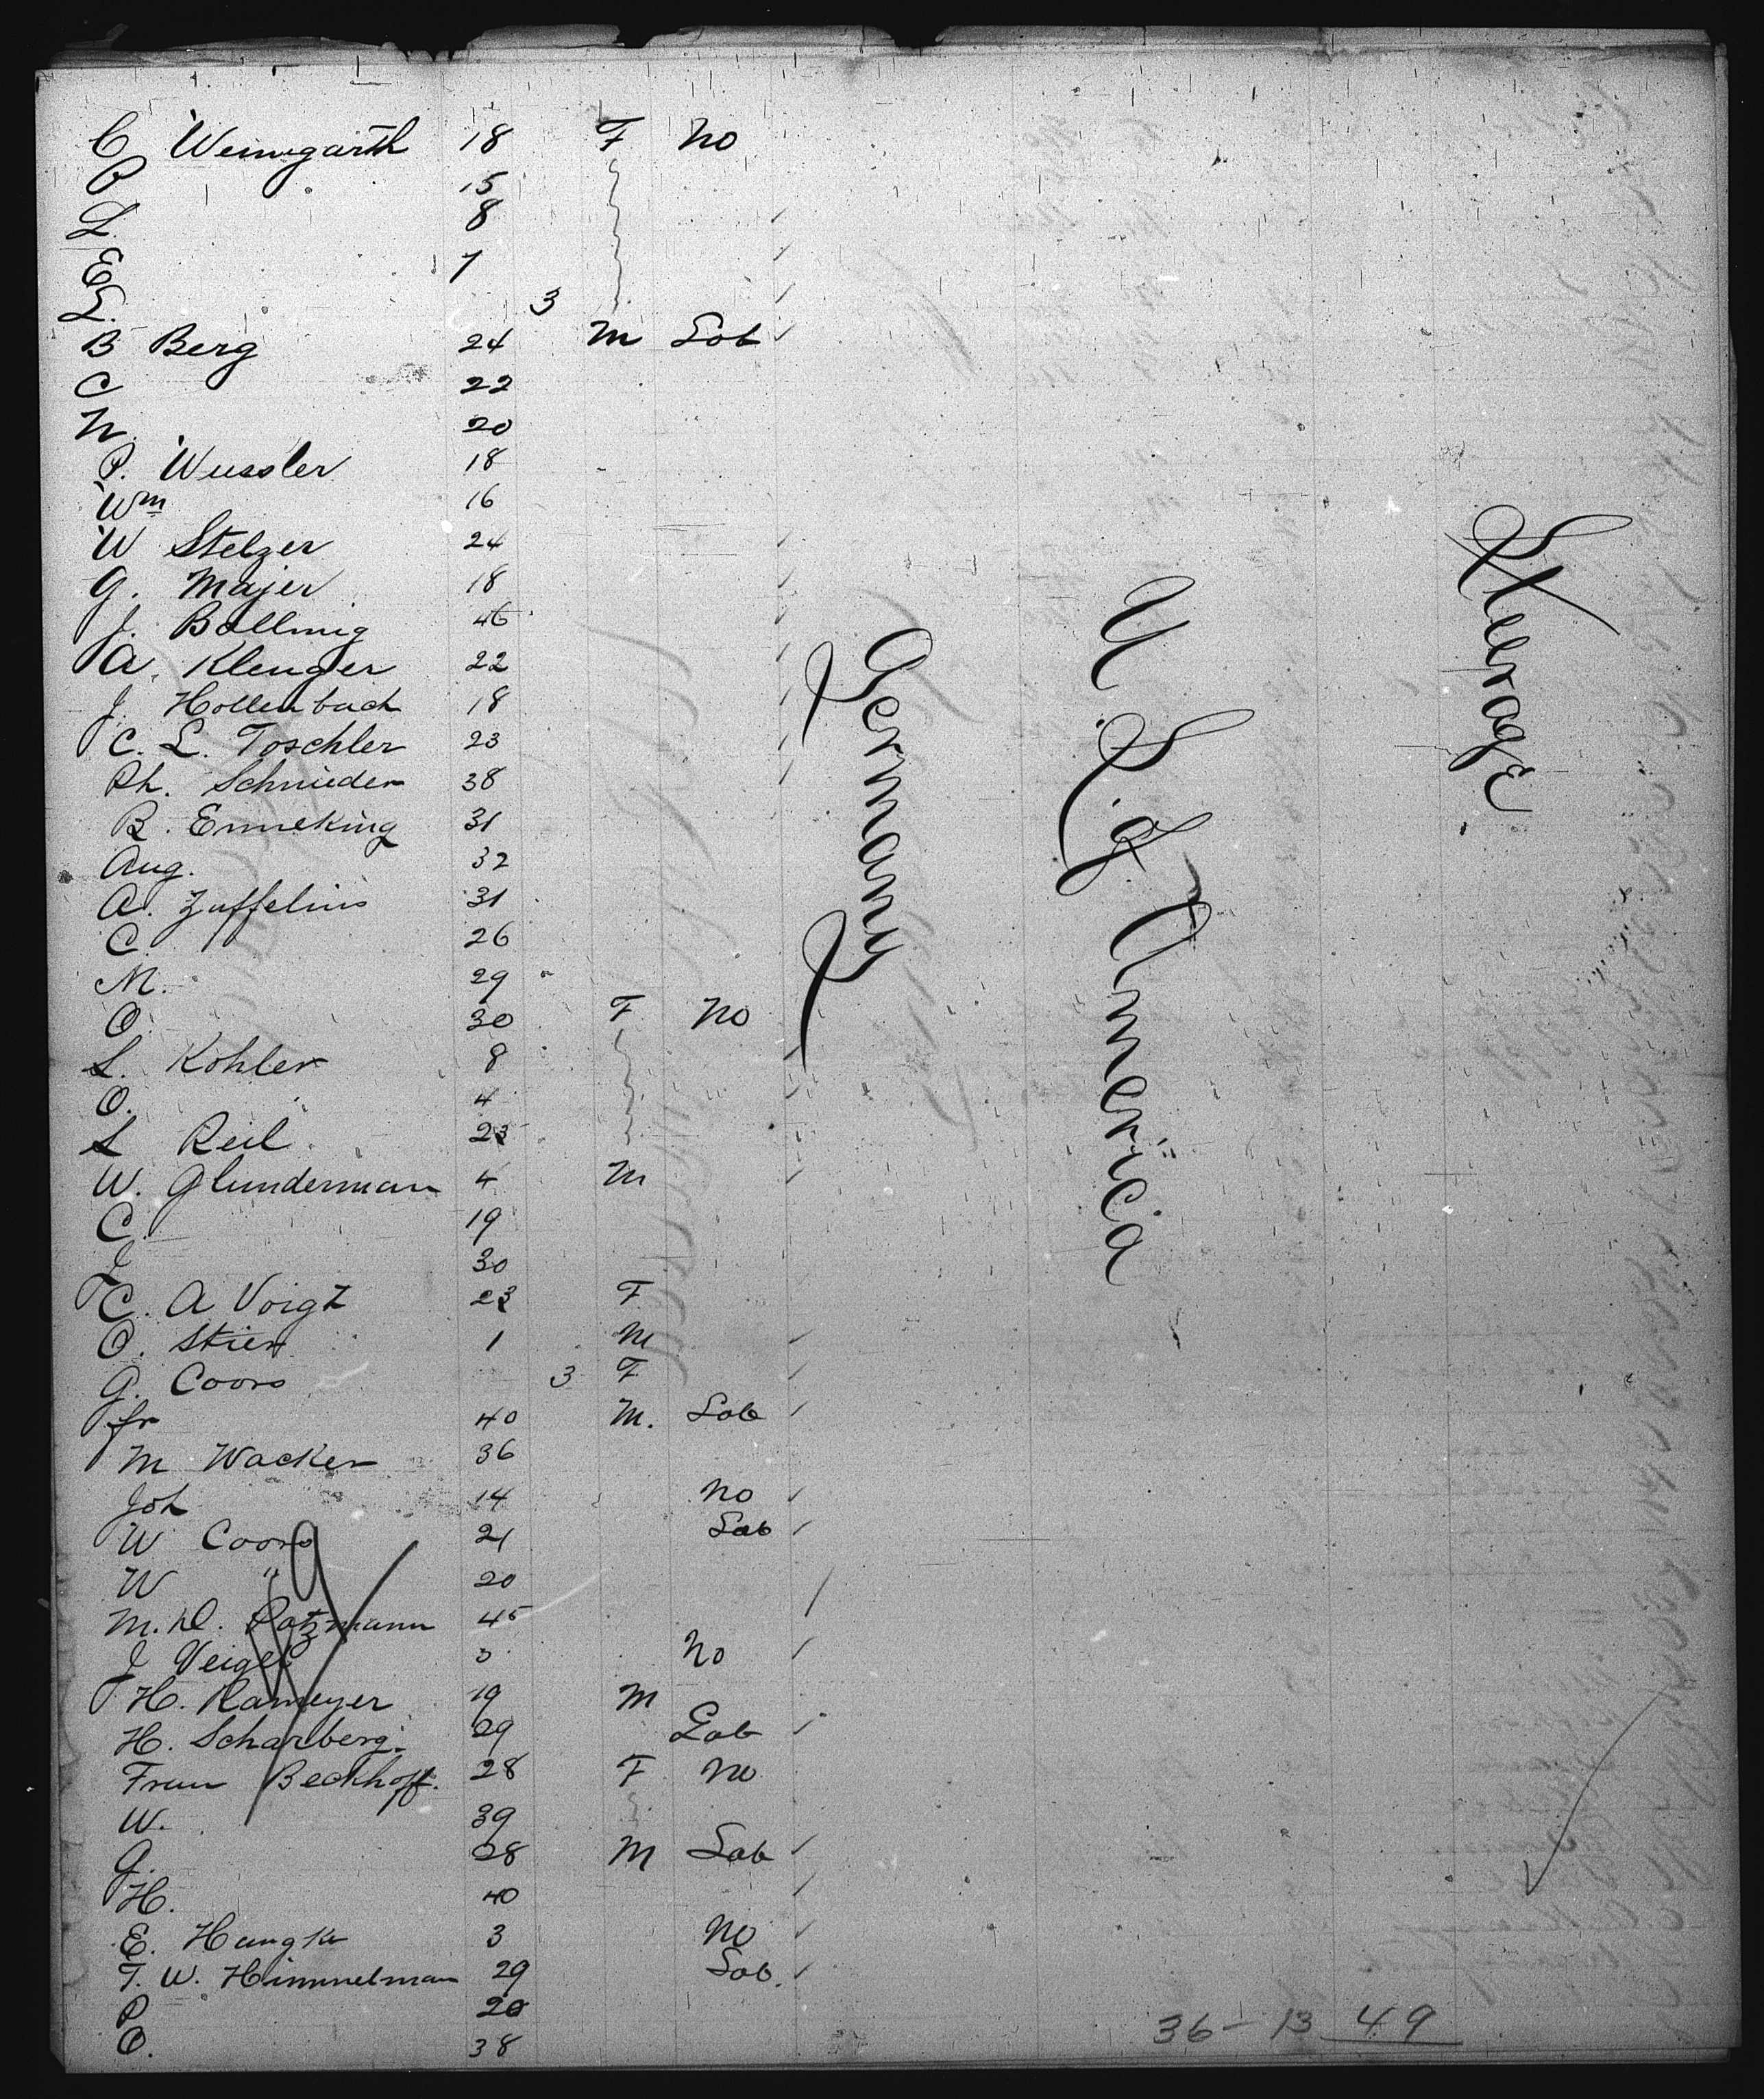 C Weinngarth 18 F No
P 15
L. 8
E 7
L. 3
B Berg 24 M Lab
C 22
N. 20
P. Wussler 18
Wm 16
W Stelzer 24
G. Majer 18
J. Bollmig 46
A. Klenger 22
J Hollenbach 18
C. L. Toschler 23
Ph. Schnieder 38
B. Enneking 31
Aug. 32
A. Zuffelius 31
C. 26
M. 29
O. 30 F No
L. Kohler 8
O. 4
L Reil 23
W. Glunderman 4 M
C. 19
J 30
C. A Voigt 23 F
O. Stier 1 M
G. Coors 3 F
Fr 40 M. Lab
M Wacker 36
Joh 14 No
W Coors 21 Lab
W " 20
M. D. Patzmann 45
J Veigel 3 No
H. Rameyer 19 M
H. Scharberg. 29 Lab
Frau Beckhoff. 28 F No
W. 39
G. 28 M Lab
H. 40
E. Hangk 3 No
T. W. Himmelman 29 Lab.
P 20
O. 38
Germany
U. S. of America
Steerage
36 - 13 49